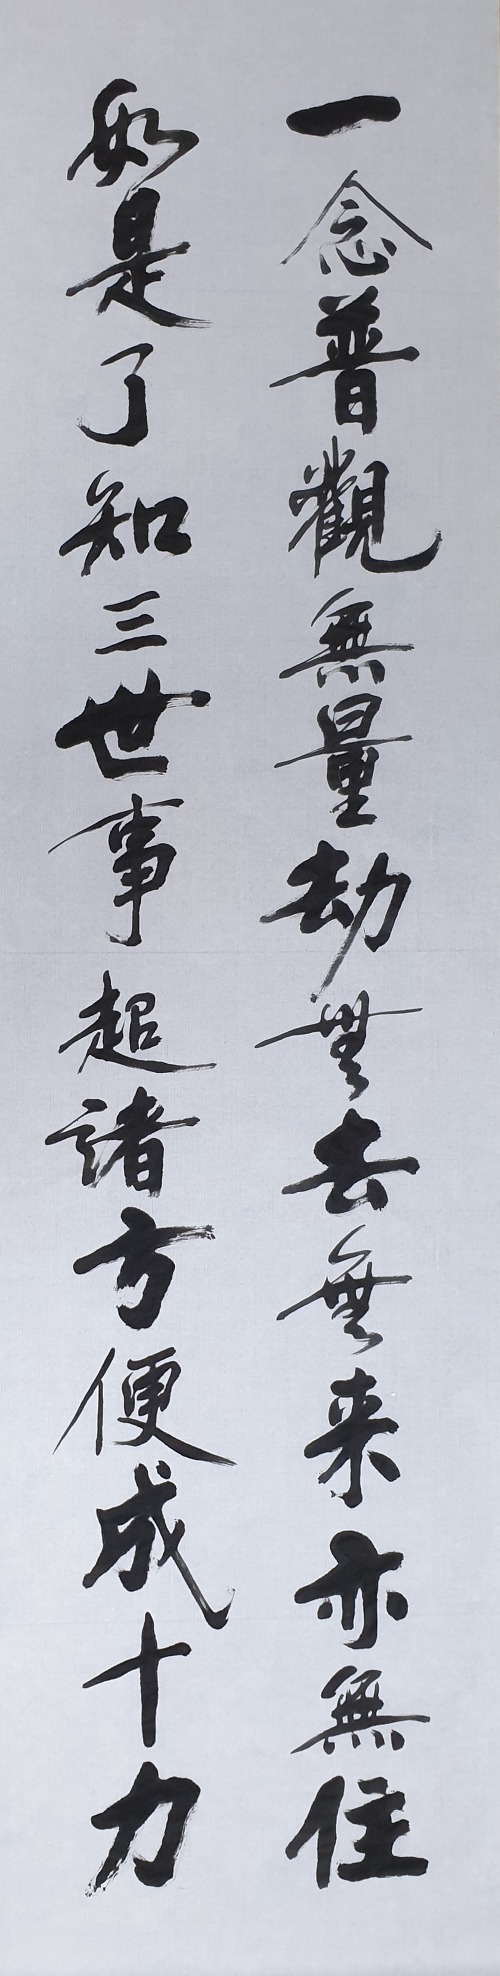 一念普觀無量劫無去無来亦無住
如是了知三世事超諸方便成十力